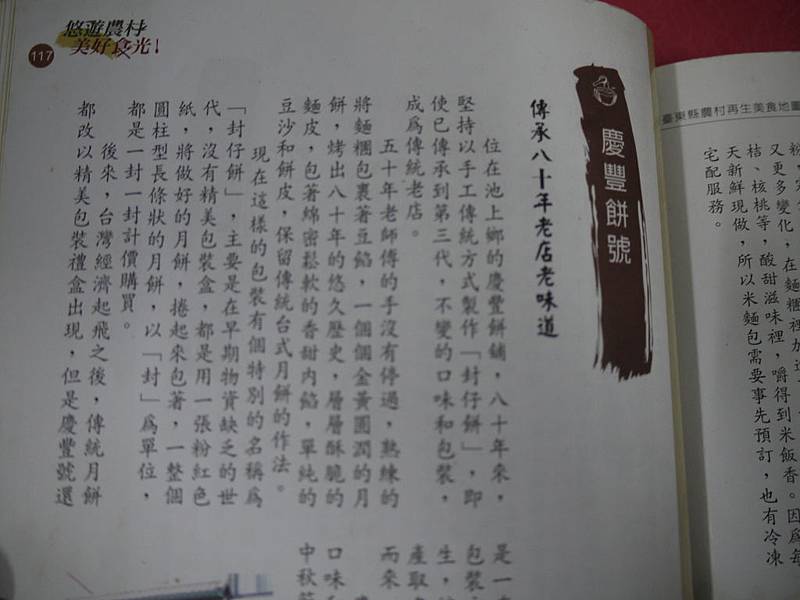 臺東縣農村再生美食地圖
又更多變化，在麵糰裡加進
桔、核桃等，酸甜滋味裡，嚼得到米飯香。因為每
天新鮮現做，所以米麵包需要事先預訂，也有冷凍
宅配服務。
悠遊農村
美好食光！
117
慶豐餅號
傳承八十年老店老味道
位在池上鄉的慶豐餅舖，八十年來，
堅持以手工傳統方式製作「封仔餅」，即
使已傳承到第三代，不變的口味和包裝，
成為傳統老店。
五十年老師傅的手沒有停過，熟練的
將麵糰包裹著豆餡，一個個金黃圓潤的月
餅，烤出八十年的悠久歷史，層層酥脆的
麵皮，包著綿密鬆軟的香甜內餡，單純的
豆沙和餅皮，保留傳統台式月餅的作法。
現在這樣的包裝有個特別的名稱為
「封仔餅」，主要是在早期物資缺乏的世
代，沒有精美包裝盒，都是用一張粉紅色
紙，將做好的月餅，捲起來包著，一整個
圓柱型長條狀的月餅，以「封」為單位，
都是一封一封計價購買。
後來，台灣經濟起飛之後，傳統月餅
都改以精美包裝禮盒出現，但是慶豐號還
是一
包裝
生，
產取
而來
口味
中秋節